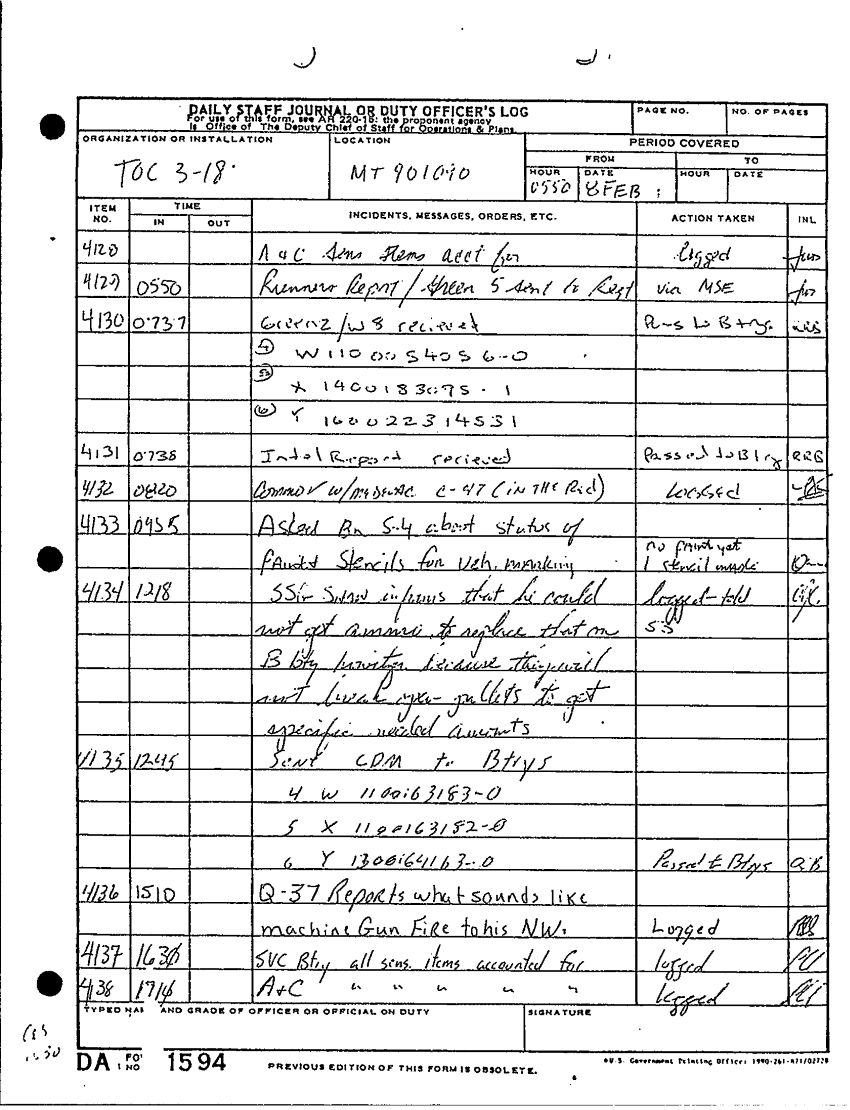 DAILY STAFF JOURNAL OR DUTY OFFICER'S LOG
For use of this form, see AR 220-15: the proponent agency
is Office of The Deputy Chief of Staff for Operations & Plans.
PAGE NO.
NO. OF PAGES
ORGANIZATION OR INSTALLATION
TOC 3-18.
LOCATION
MT 901090
PERIOD COVERED
FROM
TO
HOUR DATE HOUR DATE
0550 8 FEB
ITEM NO.
TIME
IN OUT
INCIDENTS, MESSAGES, ORDERS, ETC.
ACTION TAKEN
INL
4128 A & C Sens Items acct for logged
4129 0550 Runners Report / Green 5 sent to Regt via MSE
4130 0737 Green 2 / W8 recieved Pass to Btrys.
④ W 1100054056-0
⑤ X 1400183075-1
⑥ Y 1600022314531
4131 0738 Intel Report recieved Passed to Btry RRB
4132 0820 Commo ✓ w/ C-47 (IN THE Rid) Logged
4133 0955 Asked Bn S-4 about status of
paint & stencils for veh. marking no paint yet
1 stencil made
4134 1218 SSG informs that he could logged - told
not get ammo to replace that on S3
B btry because they will
not break open pallets to get
specific needed amounts
4135 1245 Sent CDM to Btrys
4 W 1100163183-0
5 X 1100163182-0
6 Y 1300164163-0 Passed to Btrys
4136 1510 Q-37 Reports what sounds like
machine Gun Fire to his NW. Logged
4137 1630 SVC Btry all sens. items accounted for logged
4138 1716 A+C " " " " " logged
TYPED NAME AND GRADE OF OFFICER OR OFFICIAL ON DUTY
SIGNATURE
DA 1594
PREVIOUS EDITION OF THIS FORM IS OBSOLETE.
*U.S. Government Printing Office: 1990-261-871/02728